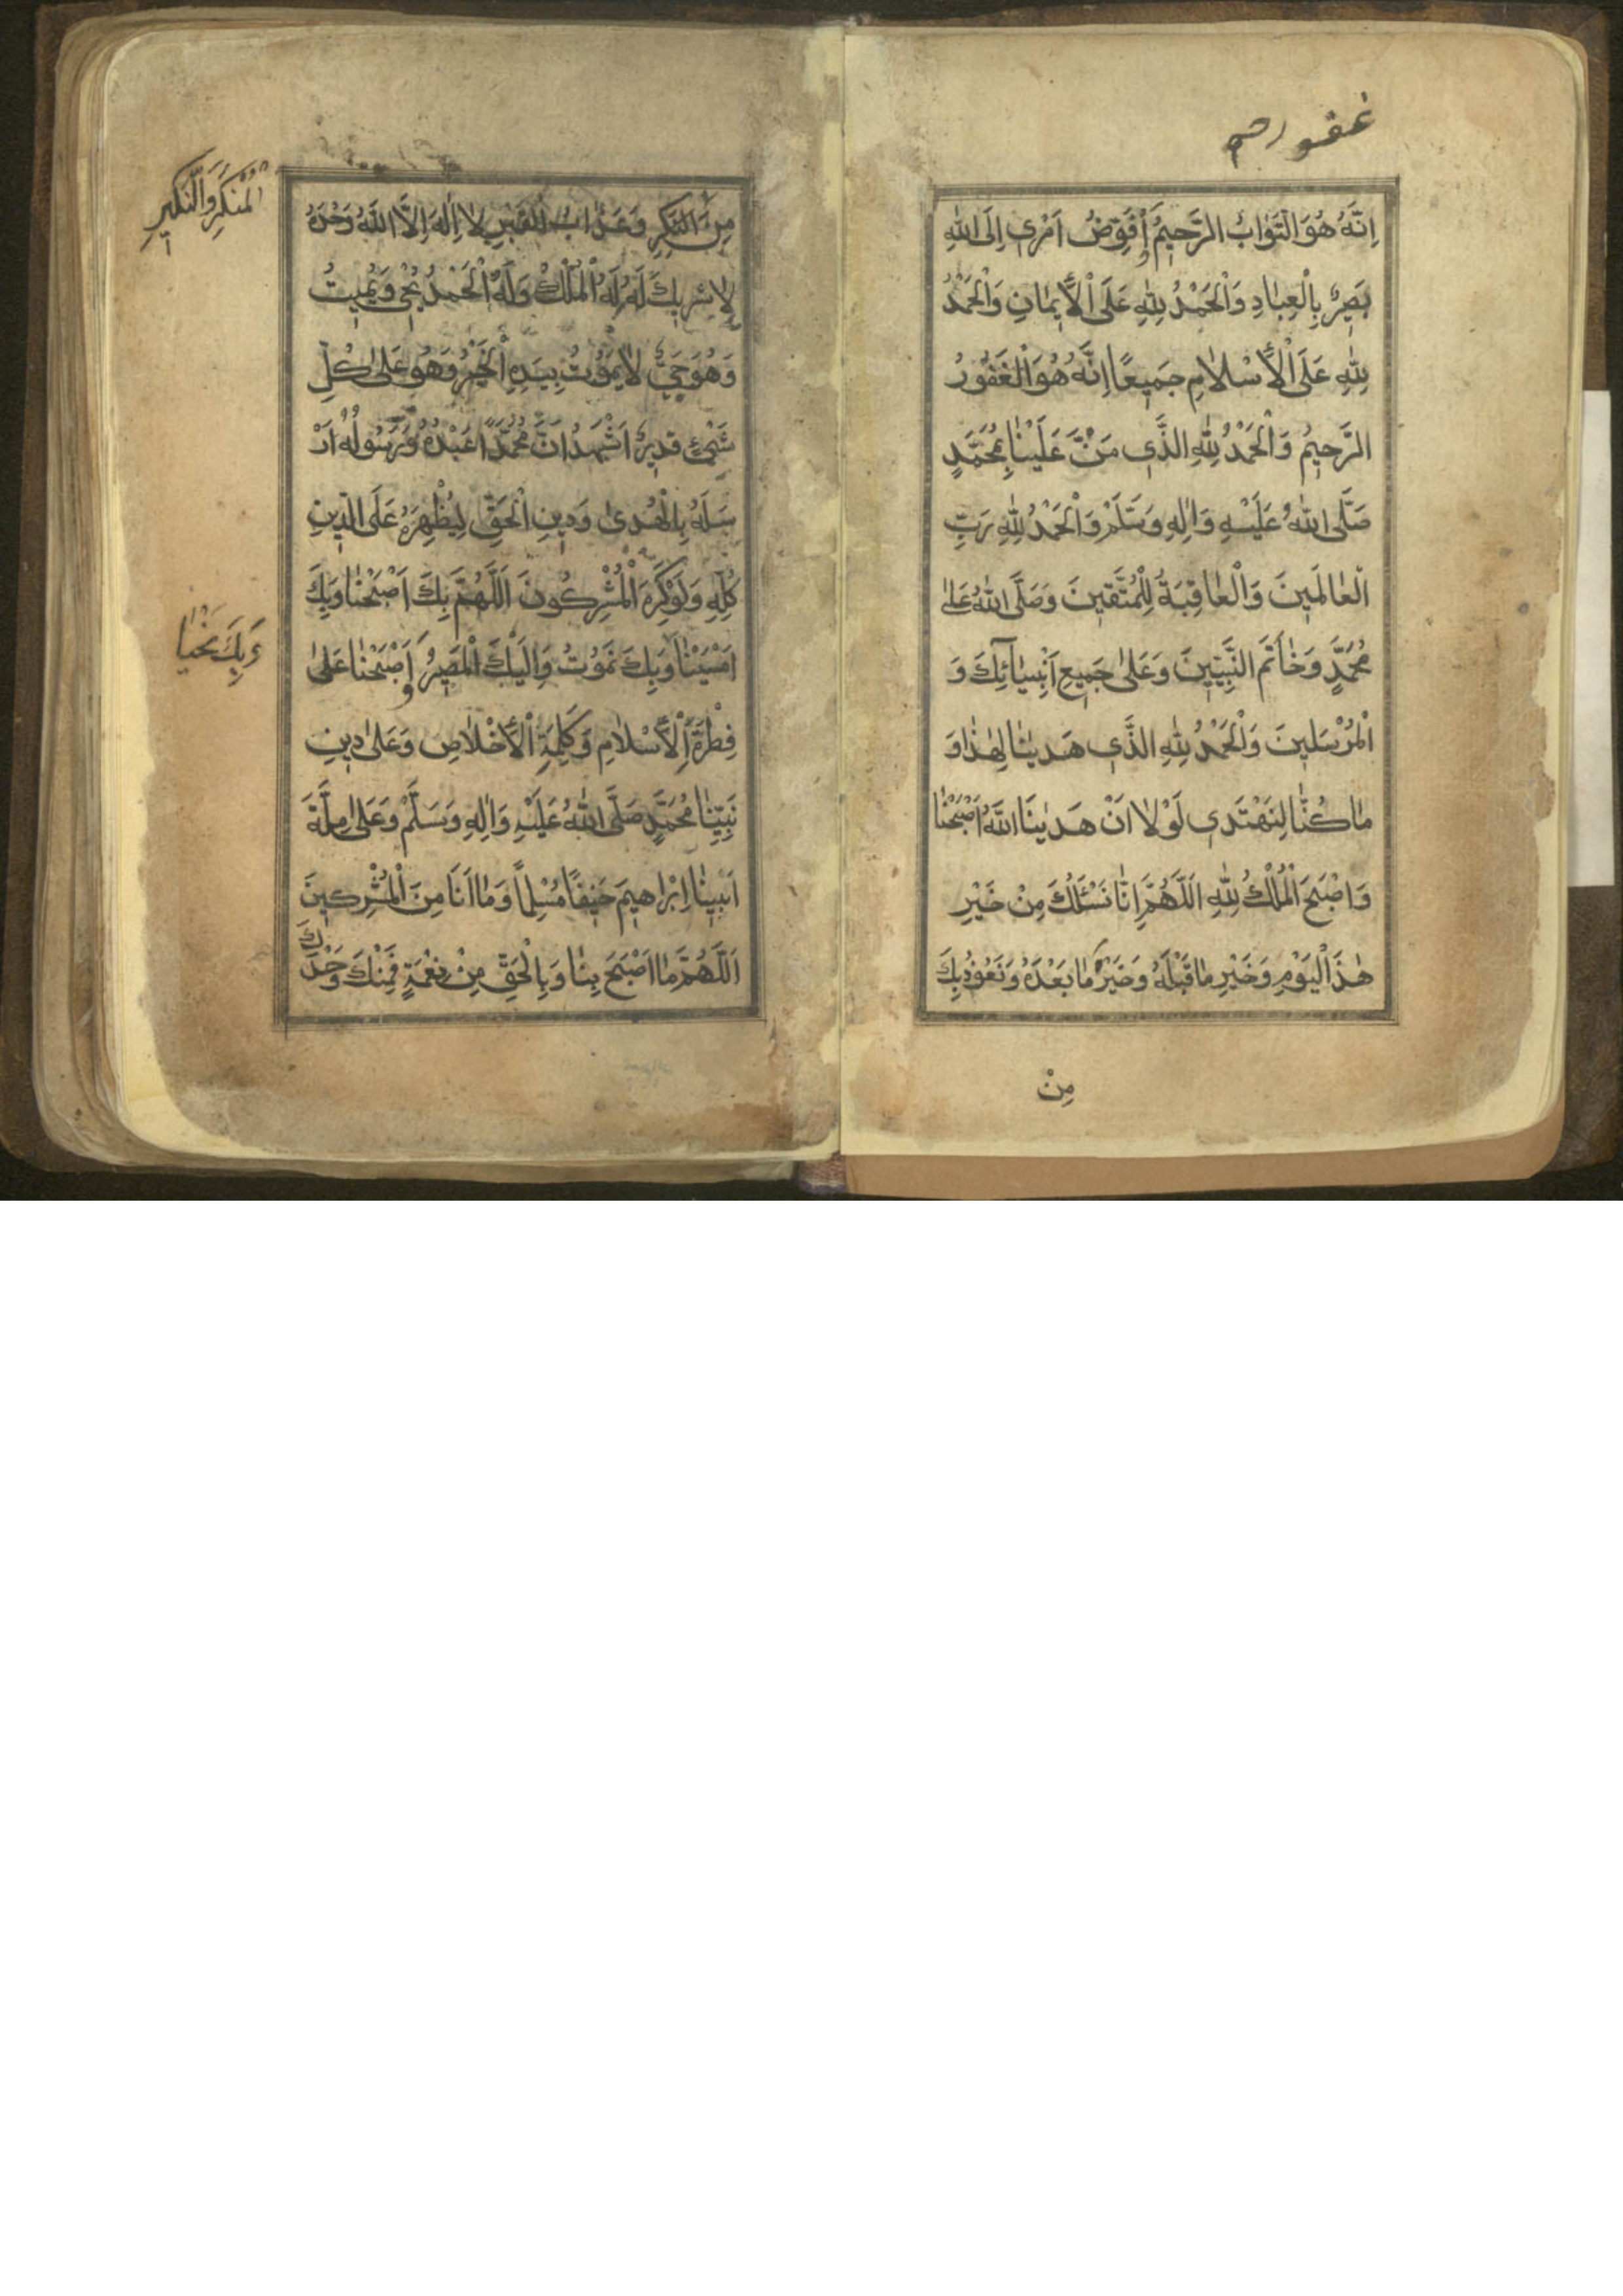 غفور رحیم
اِنَّهُ هُوَ التَّوَّابُ الرَّحيمُ وَاُفَوِّضُ اَمْرِي اِلَى اللهِ
بَصيرٌ بِالْعِبٰادِ وَالْحَمْدُ لِلّٰهِ عَلَى الْأيمٰانِ وَالْحَمْدُ
لِلّٰهِ عَلَى الْأِسْلٰامِ جَميعًا اِنَّهُ هُوَ الْغَفُورُ
الرَّحيمُ وَالْحَمْدُ لِلّٰهِ الَّذي مَنَّ عَلَيْنٰا بِمُحَمَّدٍ
صَلَّى اللهُ عَلَيْهِ وَاٰلِهِ وَسَلَّمْ وَالْحَمْدُ لِلّٰهِ رَبِّ
الْعٰالَمينَ وَالْعٰاقِبَةُ لِلْمُتَّقينَ وَصَلَّى اللهُ عَلىٰ
مُحَمَّدٍ وَخٰاتَمِ النَّبِيّينَ وَعَلىٰ جَميعِ اَنْبِيٰآئِكَ وَ
الْمُرْسَلينَ وَالْحَمْدُ لِلّٰهِ الَّذي هَدٰينٰا لِهٰذٰا وَ
مٰا كُنّٰا لِنَهْتَدي لَوْلٰا اَنْ هَدٰينَا اللهُ اَصْبَحْنٰا
وَاَصْبَحَ الْمُلْكُ لِلّٰهِ اَللّٰهُمَّ اِنّٰا نَسْئَلُكَ مِنْ خَيْرِ
هٰذَا الْيَوْمِ وَخَيْرِ مٰا قَبْلَهُ وَخَيْرِ مٰا بَعْدَهُ وَنَعُوذُ بِكَ
مِنْ
الْمُنْكَرِ وَالنَّكيرِ
مِنَ النَّكِرِ وَعَذٰابِ الْقَبْرِ لٰا اِلٰهَ اِلَّا اللهُ وَحْدَهُ
لٰا شَريكَ لَهُ لَهُ الْمُلْكُ وَلَهُ الْحَمْدُ يُحْيي وَيُميتُ
وَهُوَ حَيٌّ لٰا يَمُوتُ بِيَدِهِ الْخَيْرُ وَهُوَ عَلىٰ كُلِّ
شَيْئٍ قَديرٌ اَشْهَدُ اَنَّ مُحَمَّدًا عَبْدُهُ وَرَسُولُهُ اَرْ
سَلَهُ بِالْهُدىٰ وَدينِ الْحَقِّ لِيُظْهِرَهُ عَلَى الدّينِ
كُلِّهِ وَلَوْ كَرِهَ الْمُشْرِكُونَ اَللّٰهُمَّ بِكَ اَصْبَحْنٰا وَبِكَ
وَبِكَ نَحْيٰا
اَمْسَيْنٰا وَبِكَ نَمُوتُ وَاِلَيْكَ الْمَصيرُ وَاَصْبَحْنٰا عَلىٰ
فِطْرَةِ الْأِسْلٰامِ وَكَلِمَةِ الْأِخْلٰاصِ وَعَلىٰ دينِ
نَبِيِّنٰا مُحَمَّدٍ صَلَّى اللهُ عَلَيْهِ وَاٰلِهِ وَسَلَّمْ وَعَلىٰ مِلَّةِ
اَبينٰا اِبْرٰاهيمَ حَنيفًا مُسْلِمًا وَمٰا اَنَا مِنَ الْمُشْرِكينَ
اَللّٰهُمَّ مٰا اَصْبَحَ بِنٰا وَبِالْحَقِّ مِنْ نِعْمَةٍ فَمِنْكَ وَحْدَكَ